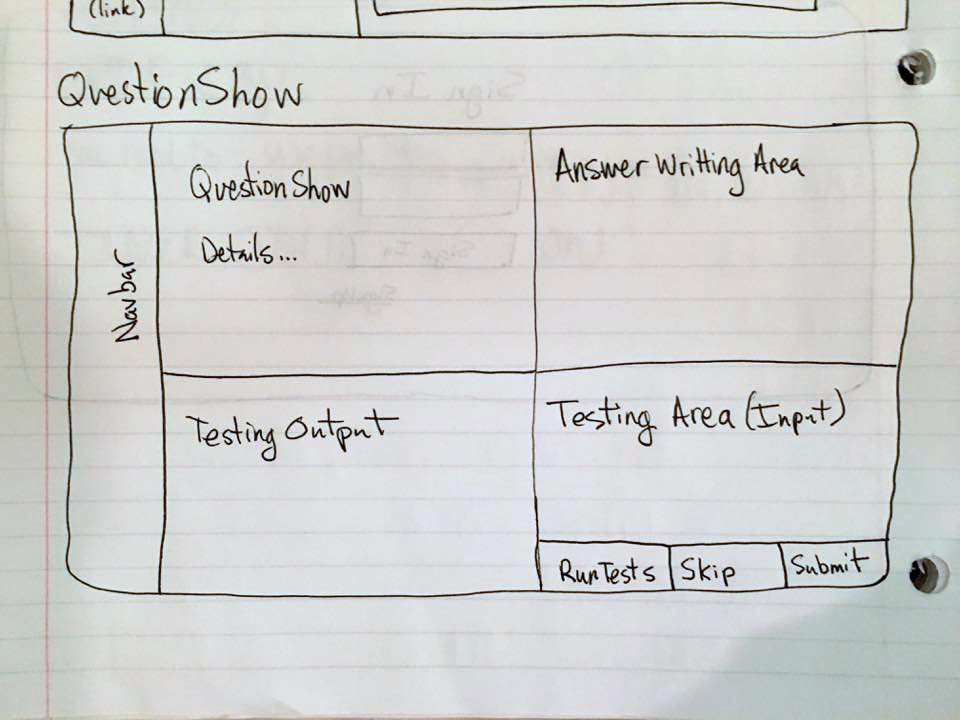 (link)
QuestionShow
Navbar
QuestionShow
Details...
Answer Writting Area
Testing Output
Testing Area (Input)
Run Tests
Skip
Submit
Sign In
Sign In
SignUp